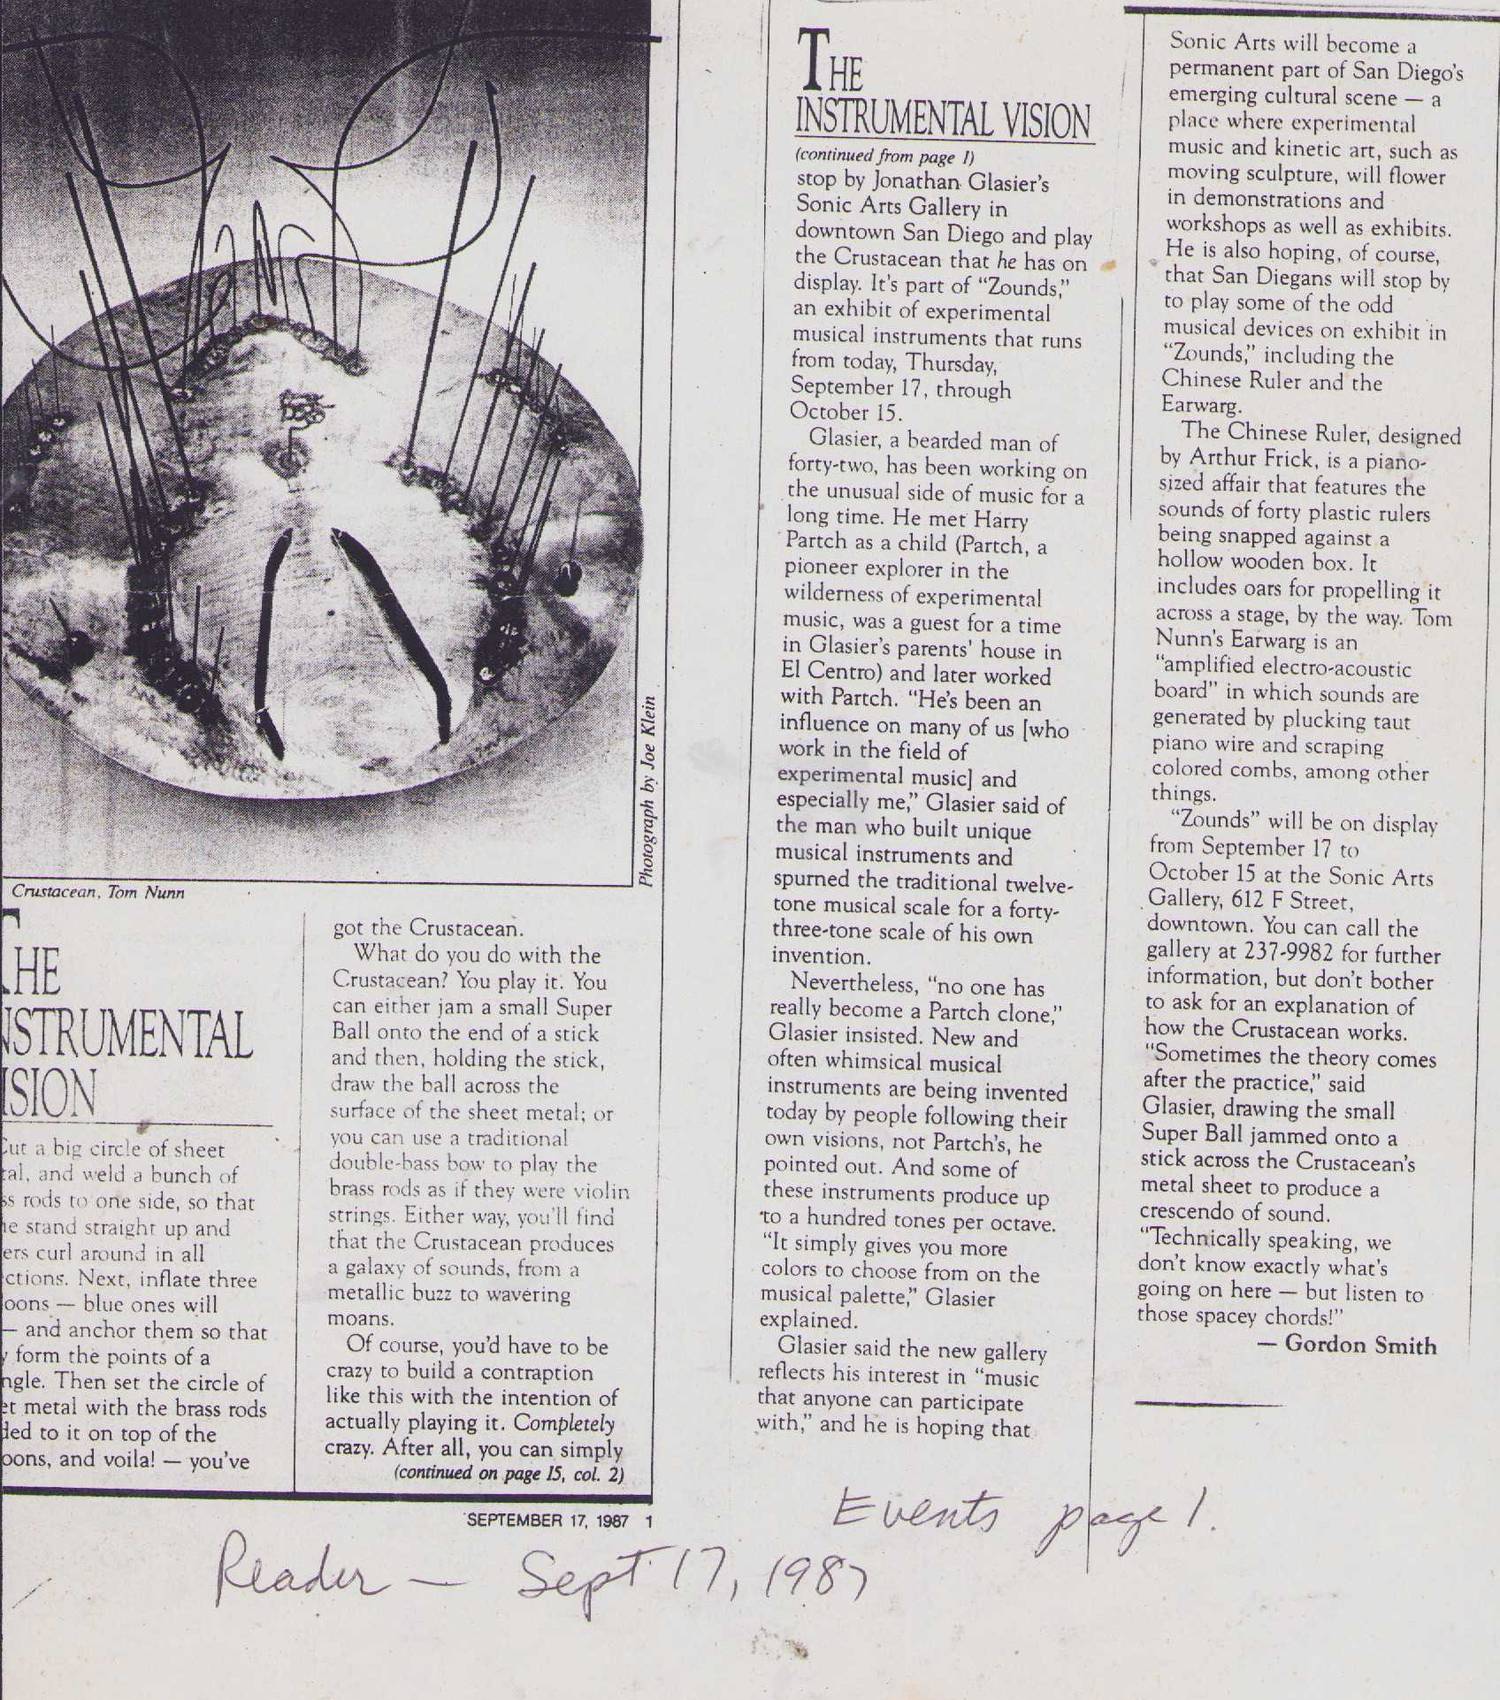 Photograph by Joe Klein
Crustacean, Tom Nunn
THE
NSTRUMENTAL
ISION
Cut a big circle of sheet
tal, and weld a bunch of
ss rods to one side, so that
ne stand straight up and
ers curl around in all
ctions. Next, inflate three
oons — blue ones will
— and anchor them so that
y form the points of a
ngle. Then set the circle of
et metal with the brass rods
ded to it on top of the
oons, and voila! — you've
got the Crustacean.
What do you do with the
Crustacean? You play it. You
can either jam a small Super
Ball onto the end of a stick
and then, holding the stick,
draw the ball across the
surface of the sheet metal; or
you can use a traditional
double-bass bow to play the
brass rods as if they were violin
strings. Either way, you'll find
that the Crustacean produces
a galaxy of sounds, from a
metallic buzz to wavering
moans.
Of course, you'd have to be
crazy to build a contraption
like this with the intention of
actually playing it. Completely
crazy. After all, you can simply
(continued on page 15, col. 2)
SEPTEMBER 17, 1987 1
THE
INSTRUMENTAL VISION
(continued from page 1)
stop by Jonathan Glasier's
Sonic Arts Gallery in
downtown San Diego and play
the Crustacean that he has on
display. It's part of "Zounds,"
an exhibit of experimental
musical instruments that runs
from today, Thursday,
September 17, through
October 15.
Glasier, a bearded man of
forty-two, has been working on
the unusual side of music for a
long time. He met Harry
Partch as a child (Partch, a
pioneer explorer in the
wilderness of experimental
music, was a guest for a time
in Glasier's parents' house in
El Centro) and later worked
with Partch. "He's been an
influence on many of us [who
work in the field of
experimental music] and
especially me," Glasier said of
the man who built unique
musical instruments and
spurned the traditional twelve-
tone musical scale for a forty-
three-tone scale of his own
invention.
Nevertheless, "no one has
really become a Partch clone,"
Glasier insisted. New and
often whimsical musical
instruments are being invented
today by people following their
own visions, not Partch's, he
pointed out. And some of
these instruments produce up
to a hundred tones per octave.
"It simply gives you more
colors to choose from on the
musical palette," Glasier
explained.
Glasier said the new gallery
reflects his interest in "music
that anyone can participate
with," and he is hoping that
Sonic Arts will become a
permanent part of San Diego's
emerging cultural scene — a
place where experimental
music and kinetic art, such as
moving sculpture, will flower
in demonstrations and
workshops as well as exhibits.
He is also hoping, of course,
that San Diegans will stop by
to play some of the odd
musical devices on exhibit in
"Zounds," including the
Chinese Ruler and the
Earwarg.
The Chinese Ruler, designed
by Arthur Frick, is a piano-
sized affair that features the
sounds of forty plastic rulers
being snapped against a
hollow wooden box. It
includes oars for propelling it
across a stage, by the way. Tom
Nunn's Earwarg is an
"amplified electro-acoustic
board" in which sounds are
generated by plucking taut
piano wire and scraping
colored combs, among other
things.
"Zounds" will be on display
from September 17 to
October 15 at the Sonic Arts
Gallery, 612 F Street,
downtown. You can call the
gallery at 237-9982 for further
information, but don't bother
to ask for an explanation of
how the Crustacean works.
"Sometimes the theory comes
after the practice," said
Glasier, drawing the small
Super Ball jammed onto a
stick across the Crustacean's
metal sheet to produce a
crescendo of sound.
"Technically speaking, we
don't know exactly what's
going on here — but listen to
those spacey chords!"
— Gordon Smith
Events page 1.
Reader — Sept 17, 1987